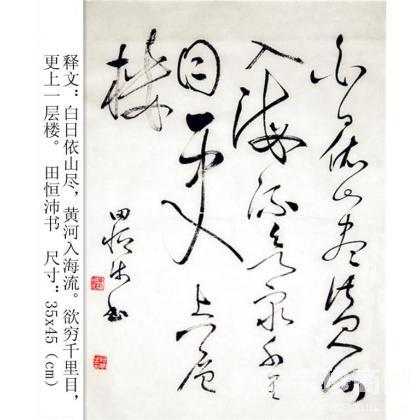 白日依山尽黄河
入海流欲穷千里
目更上一层
楼
田恒沛书
释文：白日依山尽，黄河入海流。欲穷千里目，
更上一层楼。 田恒沛书 尺寸：35x45（cm）